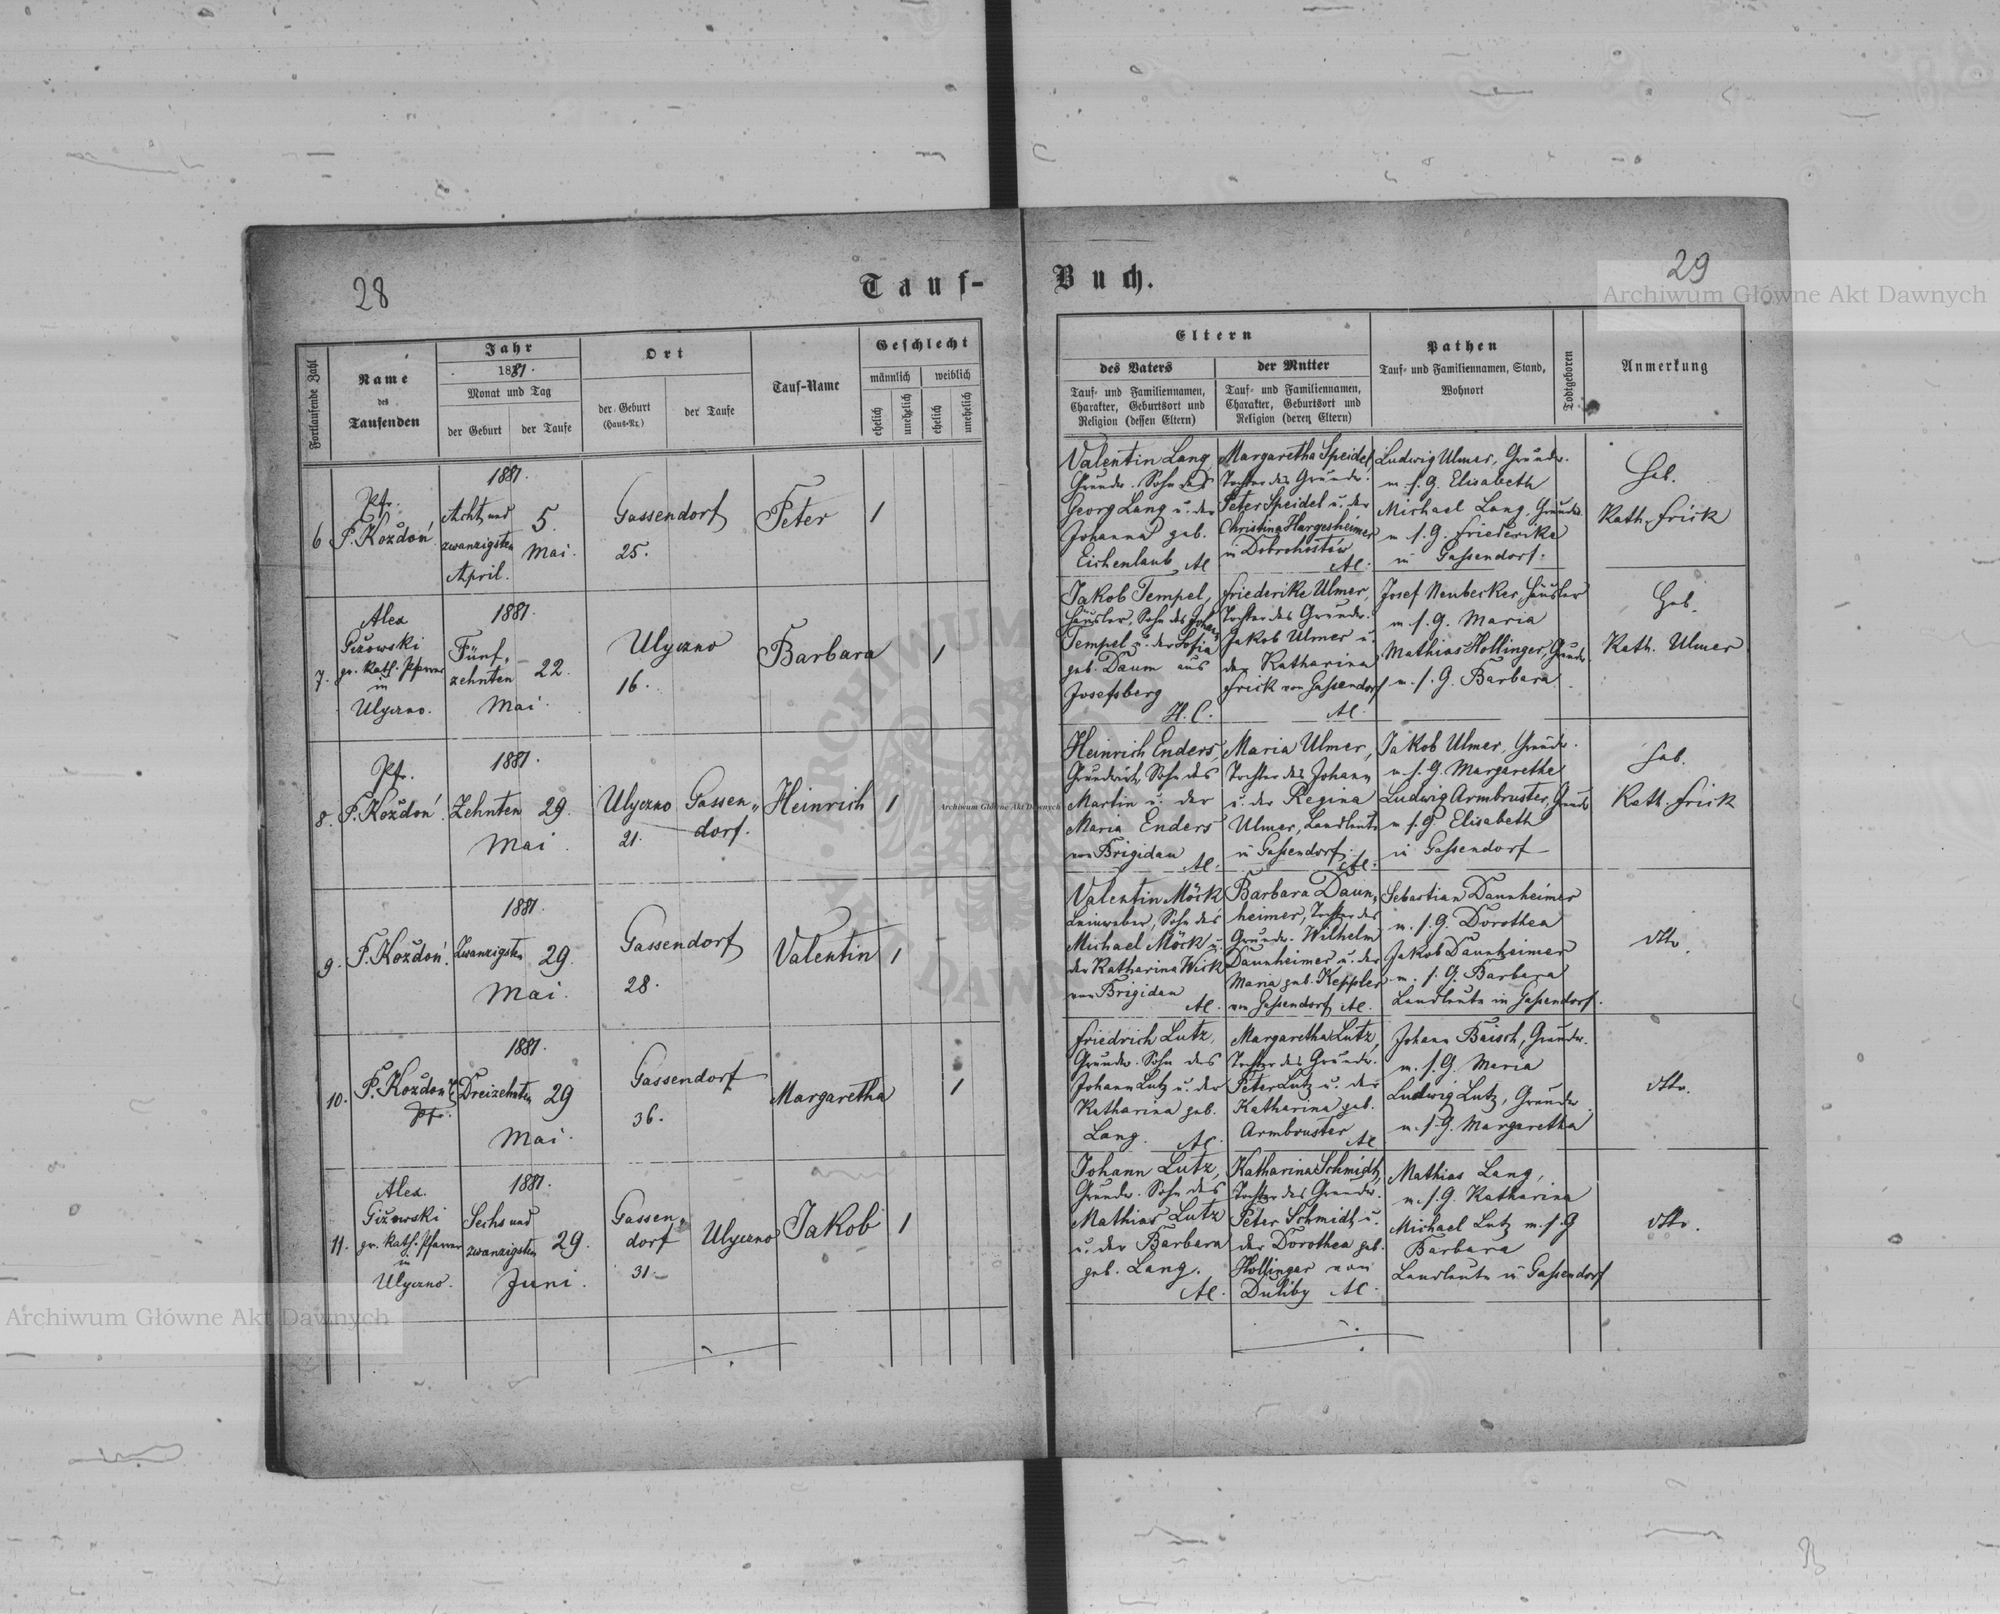 28
Tauf-
Buch.
29
Archiwum Główne Akt Dawnych
Fortlaufende Zahl
Name
des
Taufenden
Jahr
1881.
Monat und Tag
der Geburt
der Taufe
Ort
der Geburt
(Haus-Nr.)
der Taufe
Tauf-Name
Geschlecht
männlich
weiblich
ehelich
unehelich
ehelich
unehelich
Eltern
des Vaters
Tauf- und Familiennamen,
Charakter, Geburtsort und
Religion (dessen Eltern)
der Mutter
Tauf- und Familiennamen,
Charakter, Geburtsort und
Religion (deren Eltern)
Pathen
Tauf- und Familiennamen, Stand,
Wohnort
Todtgeboren
Anmerkung
6
Pfr.
F. Koždoń.
1881.
Acht und
zwanzigsten
April.
5.
Mai.
Gassendorf
25.
Peter
1
Valentin Lang,
Grundw. Sohn des
Georg Lang u. der
Johanna geb.
Eichenlaub AC
Margaretha Speidel
Tochter des Grundw.
Peter Speidel u. der
Christina Hargesheimer
in Dobrohostów
AC.
Ludwig Ulmer, Grundw.
m. s. G. Elisabeth
Michael Lang, Grundw.
m. s. G. Friederika
in Gassendorf.
Heb.
Kath. Frick
7.
Alex
Giżowski
gr. kath. Pfarrer
in
Ulyczno.
1881.
Fünf-
zehnten
Mai.
22.
Ulyczno
16.
Barbara
1
Jakob Tempel,
Häusler, Sohn des Johann
Tempel u. der Sofia
geb. Daum aus
Josefsberg
H. C.
Friederike Ulmer,
Tochter des Grundw.
Jakob Ulmer u.
der Katharina
Frick von Gassendorf
AC.
Josef Neubecker, Häusler
m. s. G. Maria
Mathias Hollinger, Grundw.
m. s. G. Barbara
Heb.
Kath. Ulmer
8.
Pfr.
F. Koždoń.
1881.
Zehnten
Mai.
29.
Ulyczno
21.
Gassen-
dorf.
Heinrich
1
Heinrich Enders,
Grundwirth, Sohn des
Martin u. der
Maria Enders
von Brigidau
AC.
Maria Ulmer,
Tochter des Johann
u. der Regina
Ulmer, Landleute
in Gassendorf.
AC.
Jakob Ulmer, Grundw.
m. s. G. Margaretha
Ludwig Armbruster, Grundw
m. s. G. Elisabeth
in Gassendorf
Heb.
Kath. Frick
9.
F. Koždoń.
1881.
Zwanzigsten
Mai.
29.
Gassendorf
28.
Valentin
1
Valentin Möck
Leinweber, Sohn des
Michael Möck u.
der Katharina Wick
von Brigidau
AC.
Barbara Daun-
heimer, Tochter des
Grundw. Wilhelm
Daunheimer u. der
Maria geb. Keppler
von Gassendorf AC.
Sebastian Daunheimer
m. s. G. Dorothea
Jakob Daunheimer
m. s. G. Barbara
Landleute in Gassendorf.
dtto.
10.
F. Koždoń
Pfr.
1881.
Dreizehnten
Mai.
29
Gassendorf
36.
Margaretha
1
Friedrich Lutz,
Grundw. Sohn des
Johann Lutz u. der
Katharina geb.
Lang. AC.
Margaretha Lutz,
Tochter des Grundw.
Peter Lutz u. der
Katharina geb.
Armbruster AC
Johann Baisch, Grundw.
m. s. G. Maria
Ludwig Lutz, Grundw.
m. s. G. Margaretha
dtto.
11.
Alex.
Giżowski
gr. kath. Pfarrer
in
Ulyczno.
1881.
Sechs und
zwanzigsten
Juni.
29.
Gassen-
dorf
31.
Ulyczno
Jakob
1
Johann Lutz,
Grundw. Sohn des
Mathias Lutz
u. der Barbara
geb. Lang.
AC.
Katharina Schmidt,
Tochter des Grundw.
Peter Schmidt u.
der Dorothea geb.
Hollinger von
Duliby AC.
Mathias Lang,
m. s. G. Katharina
Michael Lutz m. s. G
Barbara
Landleute in Gassendorf
dtto.
Archiwum Główne Akt Dawnych
Archiwum Główne Akt Dawnych